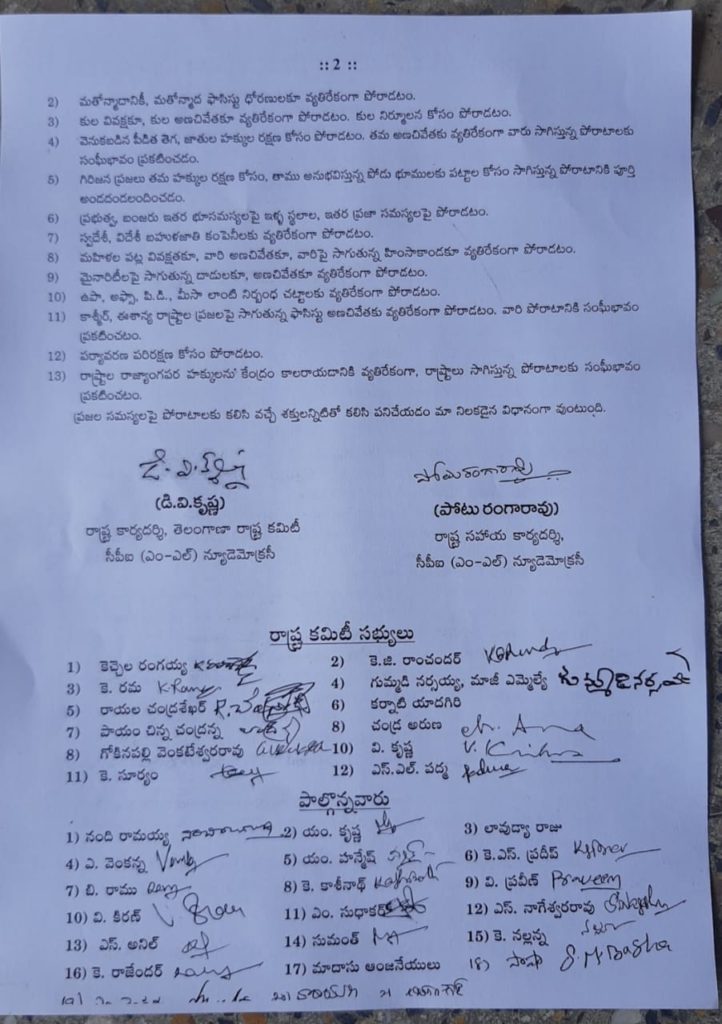 :: 2 ::
2) మతోన్మాదానికీ, మతోన్మాద ఫాసిస్టు ధోరణులకూ వ్యతిరేకంగా పోరాడటం.
3) కుల వివక్షకూ, కుల అణచివేతకూ వ్యతిరేకంగా పోరాడటం. కుల నిర్మూలన కోసం పోరాడటం.
4) వెనుకబడిన పీడిత తెగ, జాతుల హక్కుల రక్షణ కోసం పోరాడటం. తమ అణచివేతకు వ్యతిరేకంగా వారు సాగిస్తున్న పోరాటాలకు
సంఘీభావం ప్రకటించడం.
5) గిరిజన ప్రజలు తమ హక్కుల రక్షణ కోసం, తాము అనుభవిస్తున్న పోడు భూములకు పట్టాల కోసం సాగిస్తున్న పోరాటానికి పూర్తి
అండదండలందించడం.
6) ప్రభుత్వ, బంజరు ఇతర భూసమస్యలపై ఇళ్ళ స్థలాల, ఇతర ప్రజా సమస్యలపై పోరాడటం.
7) స్వదేశీ, విదేశీ బహుళజాతి కంపెనీలకు వ్యతిరేకంగా పోరాడటం.
8) మహిళల పట్ల వివక్షతకూ, వారి అణచివేతకూ, వారిపై సాగుతున్న హింసాకాండకూ వ్యతిరేకంగా పోరాడటం.
9) మైనారిటీలపై సాగుతున్న దాడులకూ, అణచివేతకూ వ్యతిరేకంగా పోరాడటం.
10) ఉపా, అఫ్సా, పి.డి., మీసా లాంటి నిర్బంధ చట్టాలకు వ్యతిరేకంగా పోరాడటం.
11) కాశ్మీర్, ఈశాన్య రాష్ట్రాల ప్రజలపై సాగుతున్న ఫాసిస్టు అణచివేతకు వ్యతిరేకంగా పోరాడటం. వారి పోరాటానికి సంఘీభావం
ప్రకటించటం.
12) పర్యావరణ పరిరక్షణ కోసం పోరాడటం.
13) రాష్ట్రాల రాజ్యాంగపర హక్కులను కేంద్రం కాలరాయడానికి వ్యతిరేకంగా, రాష్ట్రాలు సాగిస్తున్న పోరాటాలకు సంఘీభావం
ప్రకటించటం.
ప్రజల సమస్యలపై పోరాటాలకు కలిసి వచ్చే శక్తులన్నిటితో కలిసి పనిచేయడం మా నిలకడైన విధానంగా వుంటుంది.
డి.వి.కృష్ణ పోటు రంగారావు
(డి.వి.కృష్ణ) (పోటు రంగారావు)
రాష్ట్ర కార్యదర్శి, తెలంగాణా రాష్ట్ర కమిటీ రాష్ట్ర సహాయ కార్యదర్శి,
సీపీఐ (ఎం-ఎల్) న్యూడెమోక్రసీ సీపీఐ (ఎం-ఎల్) న్యూడెమోక్రసీ
రాష్ట్ర కమిటీ సభ్యులు
1) కెచ్చెల రంగయ్య 2) కె.జి. రాంచందర్
3) కె. రమ K Rama 4) గుమ్మడి నర్సయ్య, మాజీ ఎమ్మెల్యే గుమ్మడి నర్సయ్య
5) రాయల చంద్రశేఖర్ 6) కర్నాటి యాదగిరి
7) పాయం చిన్న చంద్రన్న 8) చంద్ర అరుణ
8) గోకినపల్లి వెంకటేశ్వరరావు 10) వి. కృష్ణ V. Krishna
11) కె. సూర్యం 12) ఎస్.ఎల్. పద్మ Padma
పాల్గొన్నవారు
1) నంది రామయ్య 2) యం. కృష్ణ 3) లావుద్యా రాజు
4) ఎ. వెంకన్న 5) యం. హన్మేష్ 6) కె.ఎస్. ప్రదీప్
7) బి. రాము 8) కె. కాశీనాథ్ 9) వి. ప్రవీణ్ Praveen
10) వి. కిరణ్ 11) ఎం. సుధాకర్ 12) ఎస్. నాగేశ్వరరావు
13) ఎస్. అనిల్ 14) సుమంత్ 15) కె. నల్లన్న
16) కె. రాజేందర్ 17) మాదాసు ఆంజనేయులు 18) పాషా S. M Basha